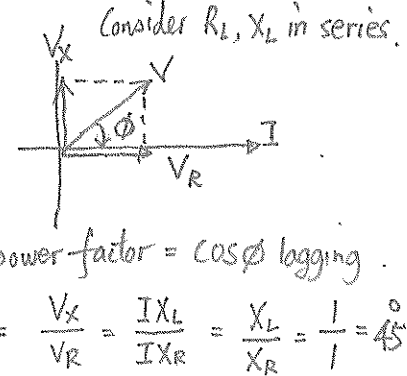 Consider R_L, X_L in series.
V_X
V
ϕ
I
V_R
power factor = cosϕ lagging.
= V_X / V_R = IX_L / IX_R = X_L / X_R = 1 / 1 = 45°